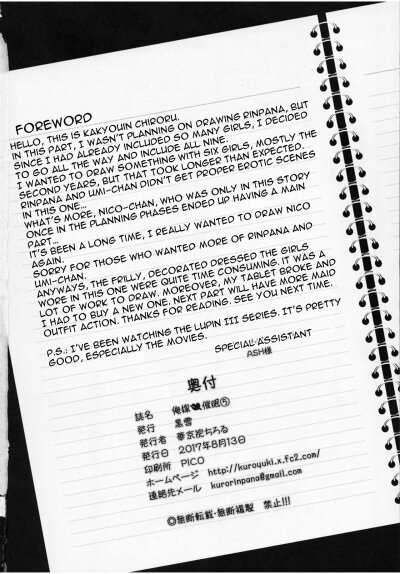 FOREWORD
HELLO, THIS IS KAKYOUIN CHIRORU.
IN THIS PART, I WASN'T PLANNING ON DRAWING RINPANA, BUT
SINCE I HAD ALREADY INCLUDED SO MANY GIRLS, I DECIDED
TO GO ALL THE WAY AND INCLUDE ALL NINE.
I WANTED TO DRAW SOMETHING WITH SIX GIRLS, MOSTLY THE
SECOND YEARS, BUT THAT TOOK LONGER THAN EXPECTED.
RINPANA AND UMI-CHAN DIDN'T GET PROPER EROTIC SCENES
IN THIS ONE...
WHAT'S MORE, NICO-CHAN, WHO WAS ONLY IN THIS STORY
ONCE IN THE PLANNING PHASES ENDED UP HAVING A MAIN
PART...
IT'S BEEN A LONG TIME, I REALLY WANTED TO DRAW NICO
AGAIN.
SORRY FOR THOSE WHO WANTED MORE OF RINPANA AND
UMI-CHAN.
ANYWAYS, THE FRILLY, DECORATED DRESSED THE GIRLS
WORE IN THIS ONE WERE QUITE TIME CONSUMING. IT WAS A
LOT OF WORK TO DRAW. MOREOVER, MY TABLET BROKE AND
I HAD TO BUY A NEW ONE. NEXT PART WILL HAVE MORE MAID
OUTFIT ACTION. THANKS FOR READING. SEE YOU NEXT TIME.
P.S.: I'VE BEEN WATCHING THE LUPIN III SERIES. IT'S PRETTY
GOOD, ESPECIALLY THE MOVIES.
SPECIAL·ASSISTANT
ASH様
奥付
誌名 俺嫁♥催眠⑤
発行 黒雪
発行者 華京院ちろる
発行日 2017年8月13日
印刷所 PICO
ホームページ http://kuroyuki.x.fc2.com/
連絡先メール kurorinpana@gmail.com
◎無断転載・無断複製 禁止!!!